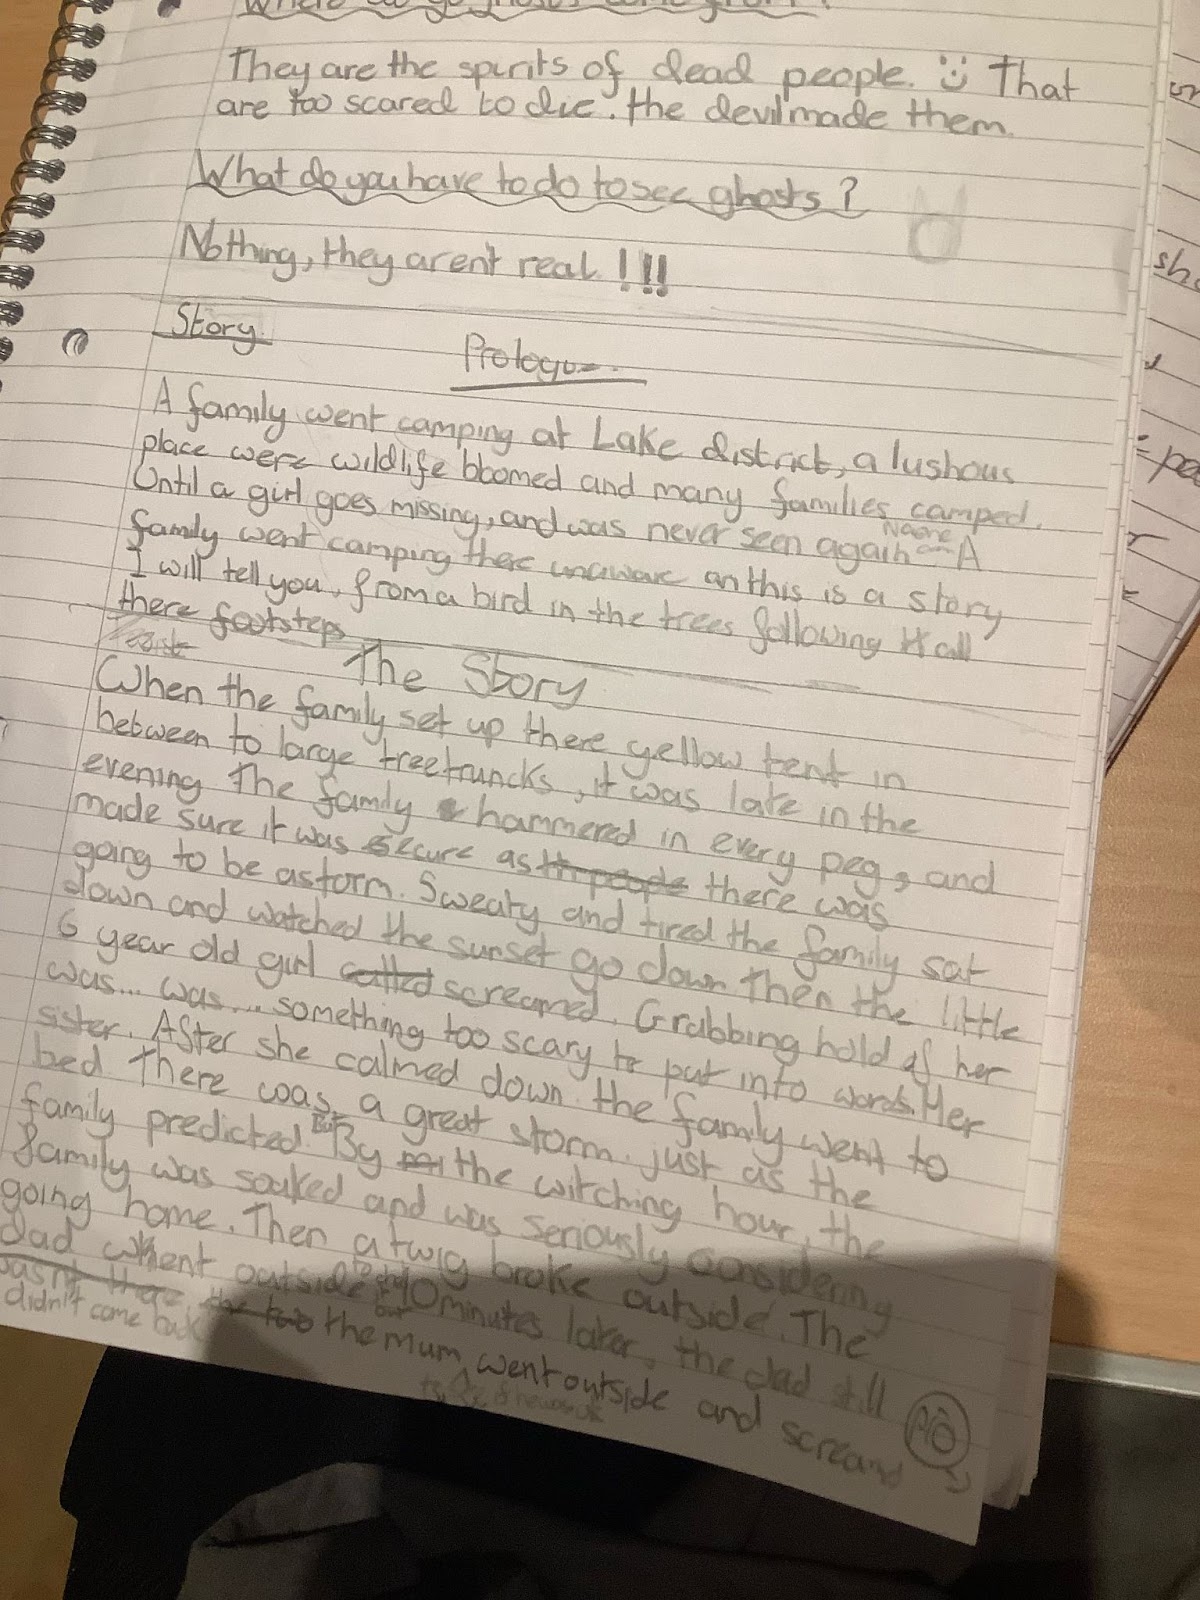 They are the spirits of dead people. That
are too scared to die. the devil made them.
What do you have to do to see ghosts?
Nothing, they aren't real !!!
Story
Prologue
A family went camping at Lake district, a lushous
place were wildlife bloomed and many families camped.
Until a girl goes missing, and was never seen again A
family went camping there unaware an this is a story
I will tell you, from a bird in the trees following it all
there footsteps
The Story
When the family set up there yellow tent in
between to large treetruncks, it was late in the
evening The family hammered in every peg, and
made sure it was secure as there was
going to be astorm. Sweaty and tired the family sat
down and watched the sunset go down Then the little
6 year old girl called screamed. Grabbing hold of her
was... was.... something too scary to put into words. Her
sister. After she calmed down the family went to
bed There was a great storm. just as the
family predicted. But By the witching hour, the
family was soaked and was seriously considering
going home. Then a twig broke outside. The
dad whent outside 10 minutes later, the dad still
didn't come back the mum went outside and screamd